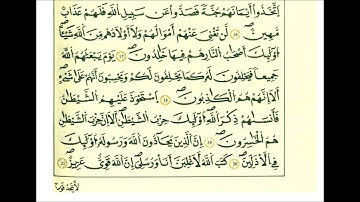 اتَّخَذُوا أَيْمَانَهُمْ جُنَّةً فَصَدُّوا عَن سَبِيلِ اللَّهِ فَلَهُمْ عَذَابٌ
مُّهِينٌ ١٦ لَّن تُغْنِيَ عَنْهُمْ أَمْوَالُهُمْ وَلَا أَوْلَادُهُم مِّنَ اللَّهِ شَيْئًا
أُولَٰئِكَ أَصْحَابُ النَّارِ هُمْ فِيهَا خَالِدُونَ ١٧ يَوْمَ يَبْعَثُهُمُ اللَّهُ
جَمِيعًا فَيَحْلِفُونَ لَهُ كَمَا يَحْلِفُونَ لَكُمْ وَيَحْسَبُونَ أَنَّهُمْ عَلَىٰ شَيْءٍ
أَلَا إِنَّهُمْ هُمُ الْكَاذِبُونَ ١٨ اسْتَحْوَذَ عَلَيْهِمُ الشَّيْطَانُ
فَأَنسَاهُمْ ذِكْرَ اللَّهِ أُولَٰئِكَ حِزْبُ الشَّيْطَانِ أَلَا إِنَّ حِزْبَ الشَّيْطَانِ
هُمُ الْخَاسِرُونَ ١٩ إِنَّ الَّذِينَ يُحَادُّونَ اللَّهَ وَرَسُولَهُ أُولَٰئِكَ
فِي الْأَذَلِّينَ ٢٠ كَتَبَ اللَّهُ لَأَغْلِبَنَّ أَنَا وَرُسُلِي إِنَّ اللَّهَ قَوِيٌّ عَزِيزٌ ٢١
لَّا تَجِدُ قَوْمًا